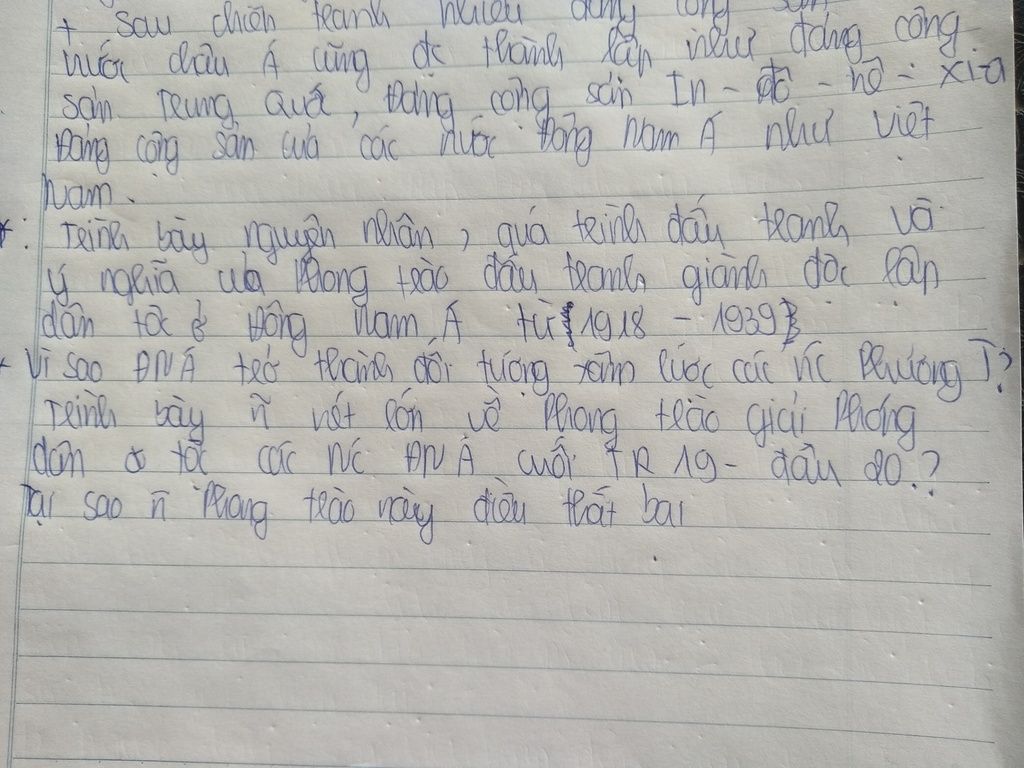 + Sau chiến tranh nhiều đảng cộng sản
nước châu Á cũng đc thành lập như đảng cộng
sản Trung Quố, Đảng cộng sản In-đô-nê-xia
Đảng cộng sản của các nước Đông Nam Á như việt
Nam.
*: Trình bày nguyên nhân, quá trình đấu tranh và
ý nghĩa của Phong trào đấu tranh giành độc lập
dân tộc ở Đông Nam Á từ 1918 - 1939
+ Vì sao ĐNÁ trở thành đối tượng xâm lược các nc Phương T?
Trình bày ñ nét lớn về Phong trào giải Phóng
dân tộc các Nc ĐNÁ cuối TK 19 - đầu 20.?
Tại sao ñ Phong trào này điều thất bại